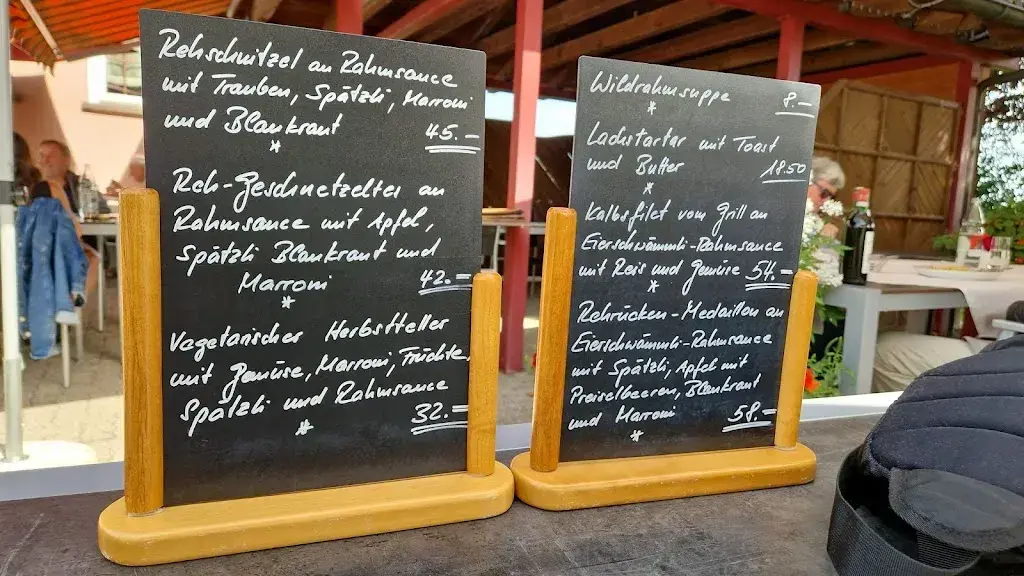 Rehschnitzel an Rahmsauce
mit Trauben, Spätzli, Marroni
und Blaukraut 45.—
*
Reh-Geschnetzeltes an
Rahmsauce mit Apfel,
Spätzli Blaukraut und
Marroni 42.—
*
Vegetarischer Herbstteller
mit Gemüse, Marroni, Früchte,
Spätzli und Rahmsauce
32.—
*
Wildrahmsuppe 8.—
*
Lachstartar mit Toast
und Butter 18.50
*
Kalbsfilet vom Grill an
Eierschwämmli-Rahmsauce
mit Reis und Gemüse 54.—
*
Rehrücken-Medaillon an
Eierschwämmli-Rahmsauce
mit Spätzli, Apfel mit
Preiselbeeren, Blaukraut
und Marroni 58.—
*